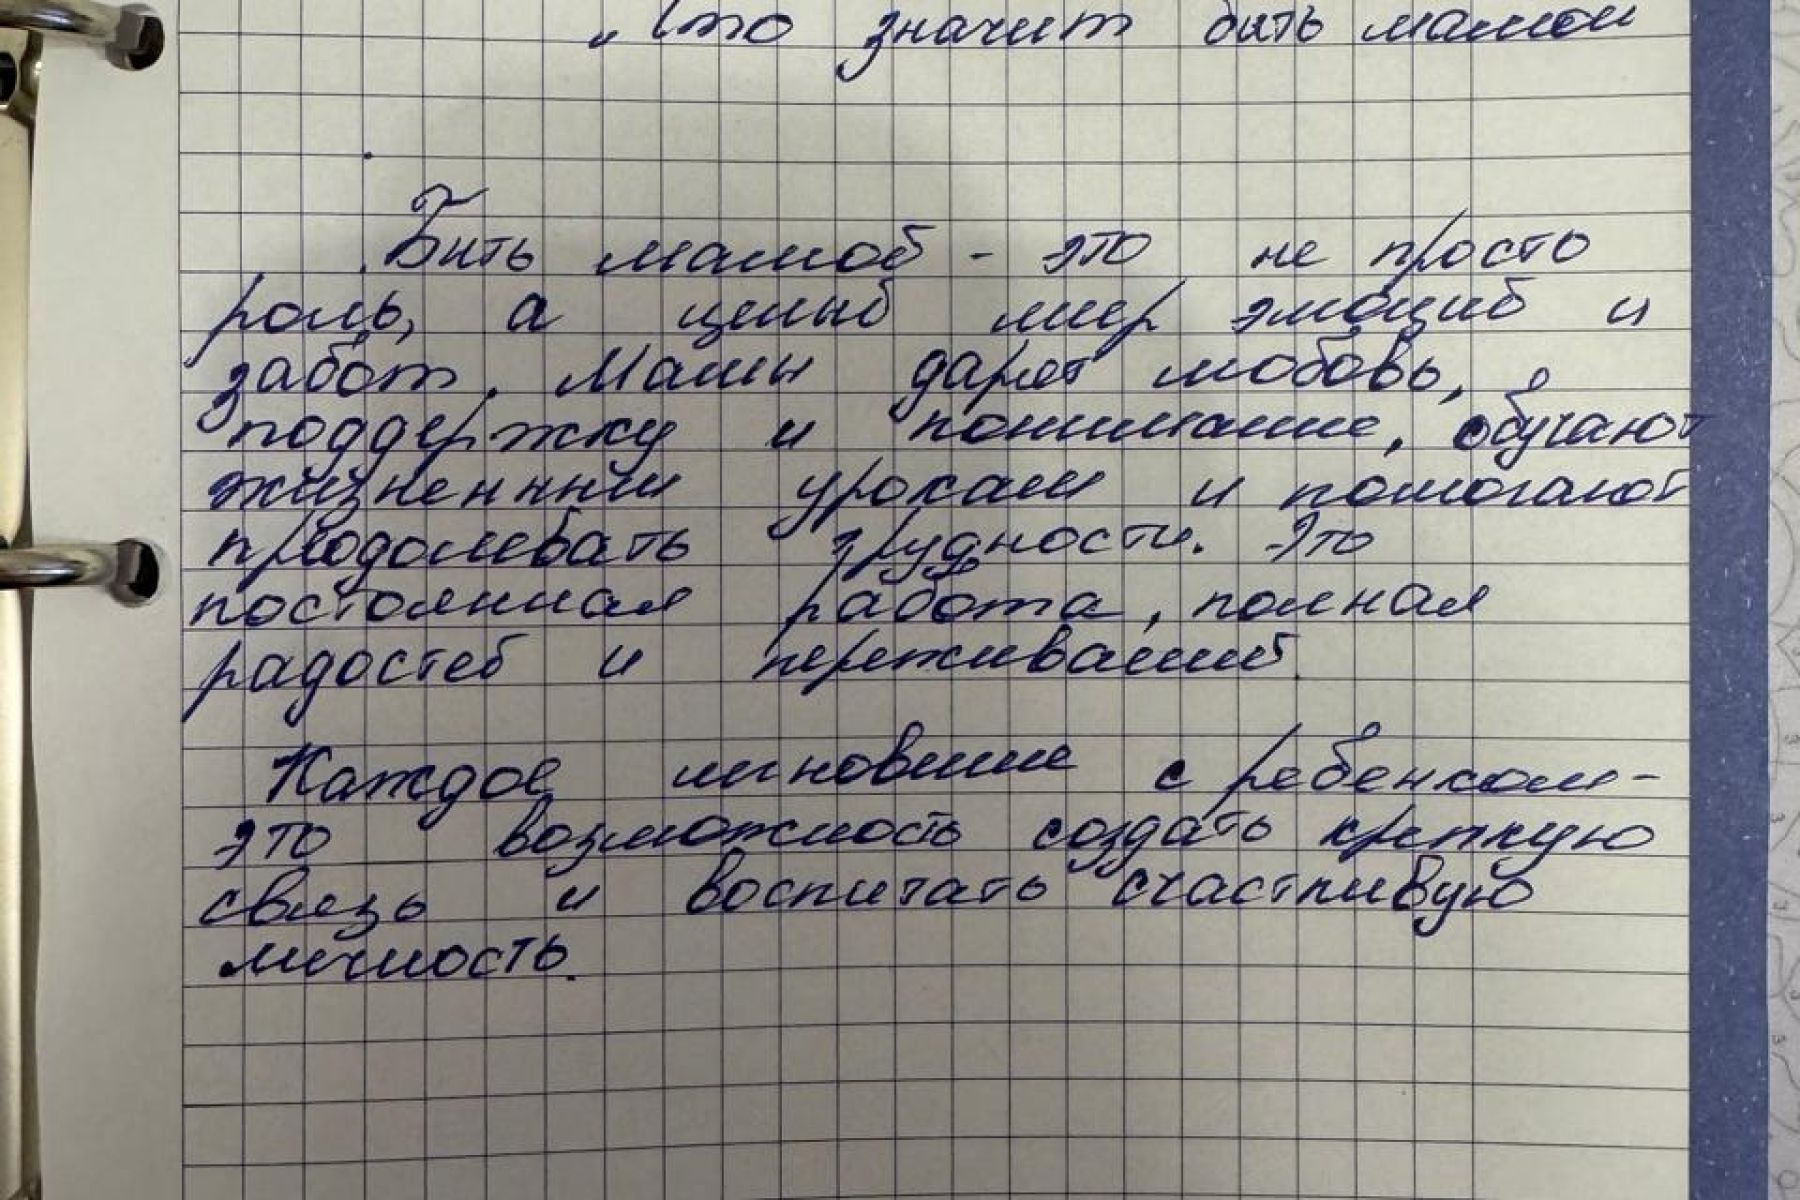 „Что значит быть мамой
Быть мамой - это не просто
роль, а целый мир эмоций и
забот. Мамы дарят любовь,
поддержку и понимание, обучают
жизненным урокам и помогают
преодолевать трудности. Это
постоянная работа, полная
радостей и переживаний.
Каждое мгновение с ребенком -
это возможность создать крепкую
связь и воспитать счастливую
личность.